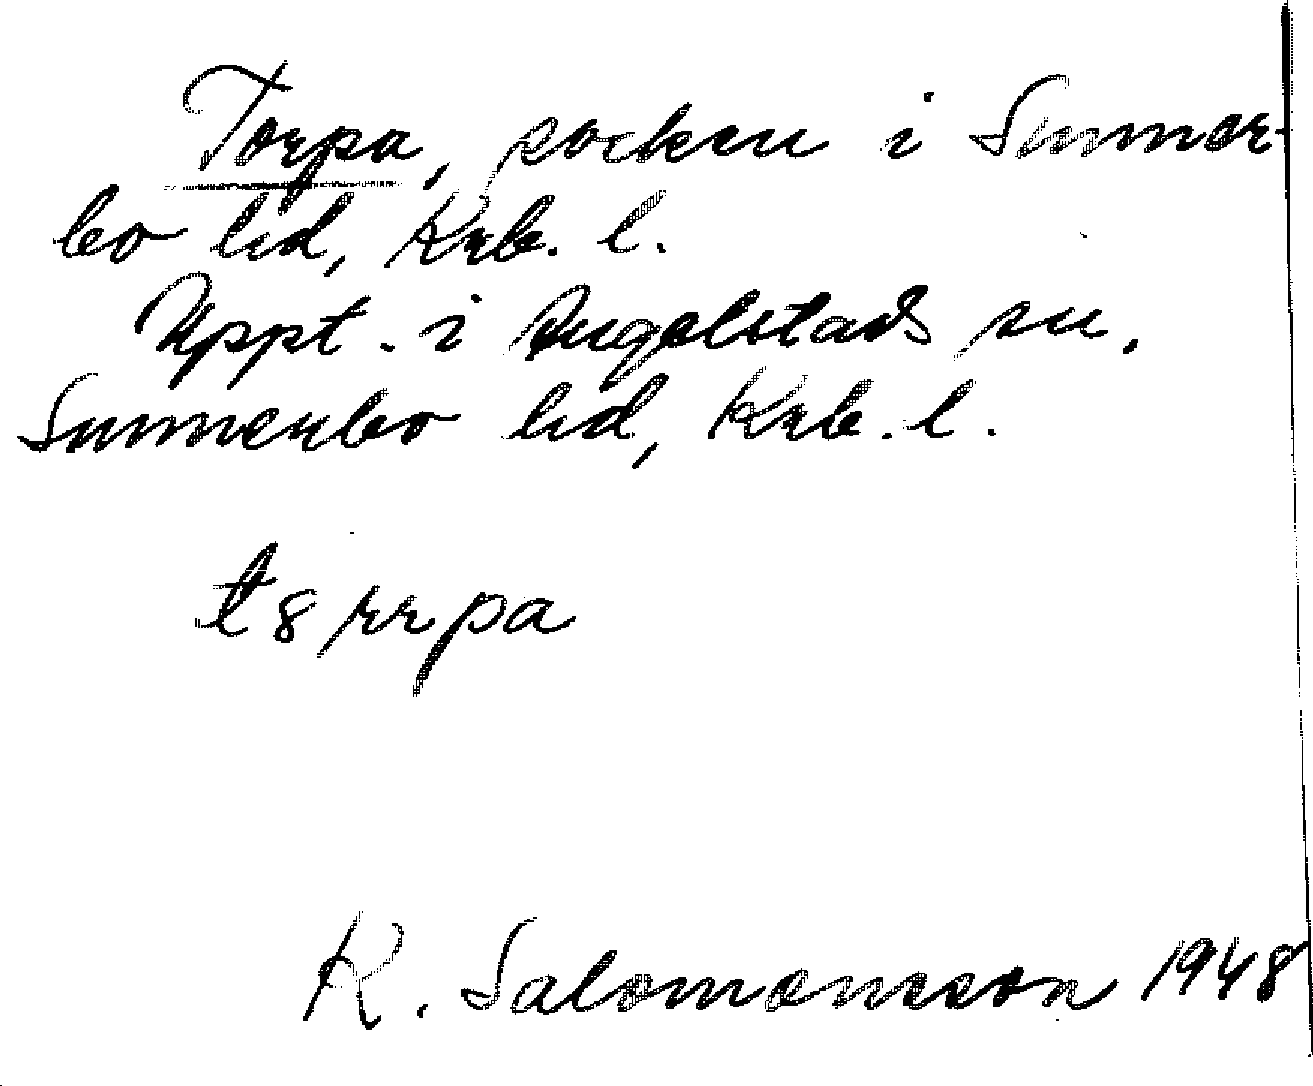 Torpa, socken i Sunner-
bo hd, Krb. l.
Uppt. i Angelstads sn,
Sunnerbo hd, Krb. l.
K. Salomonsson 1948